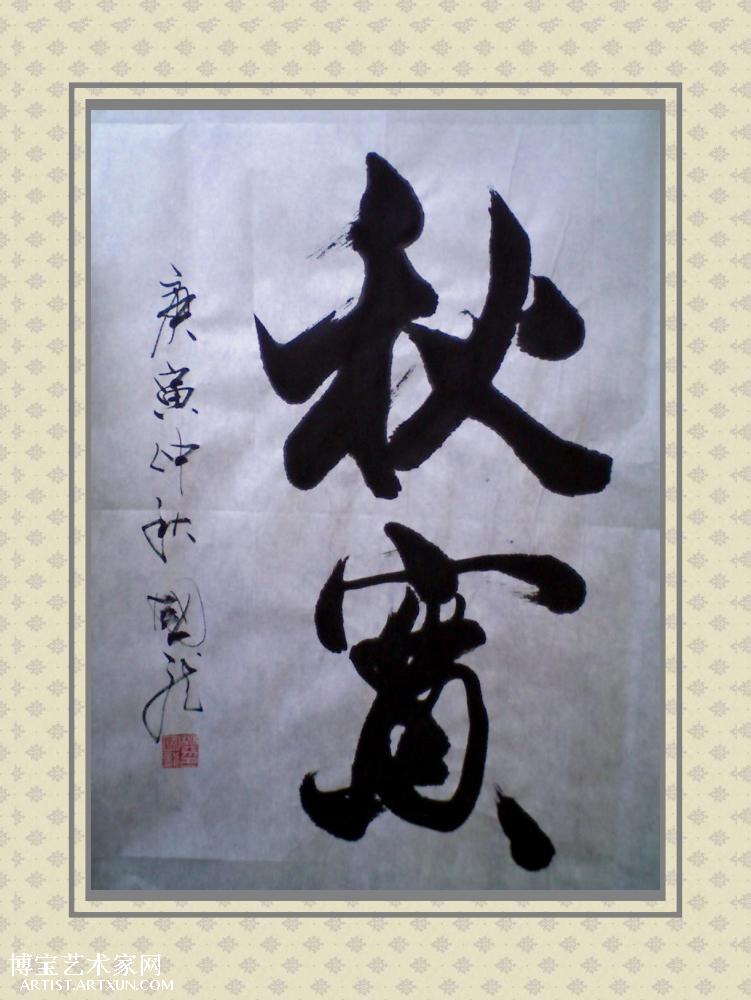 秋實
庚寅仲秋 國龍
博宝艺术家网
ARTIST.ARTXUN.COM